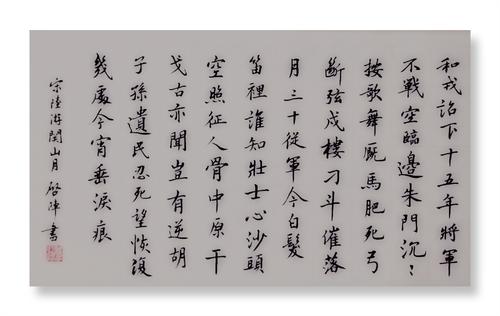 和戎詔下十五年將軍
不戰空臨邊朱門沉〻
按歌舞廄馬肥死弓
斷弦戍樓刁斗催落
月三十從軍今白髮
笛裡誰知壯士心沙頭
空照征人骨中原干
戈古亦聞豈有逆胡
子孫遺民忍死望恢復
幾處今宵垂淚痕
宋陸游関山月 啓陣書